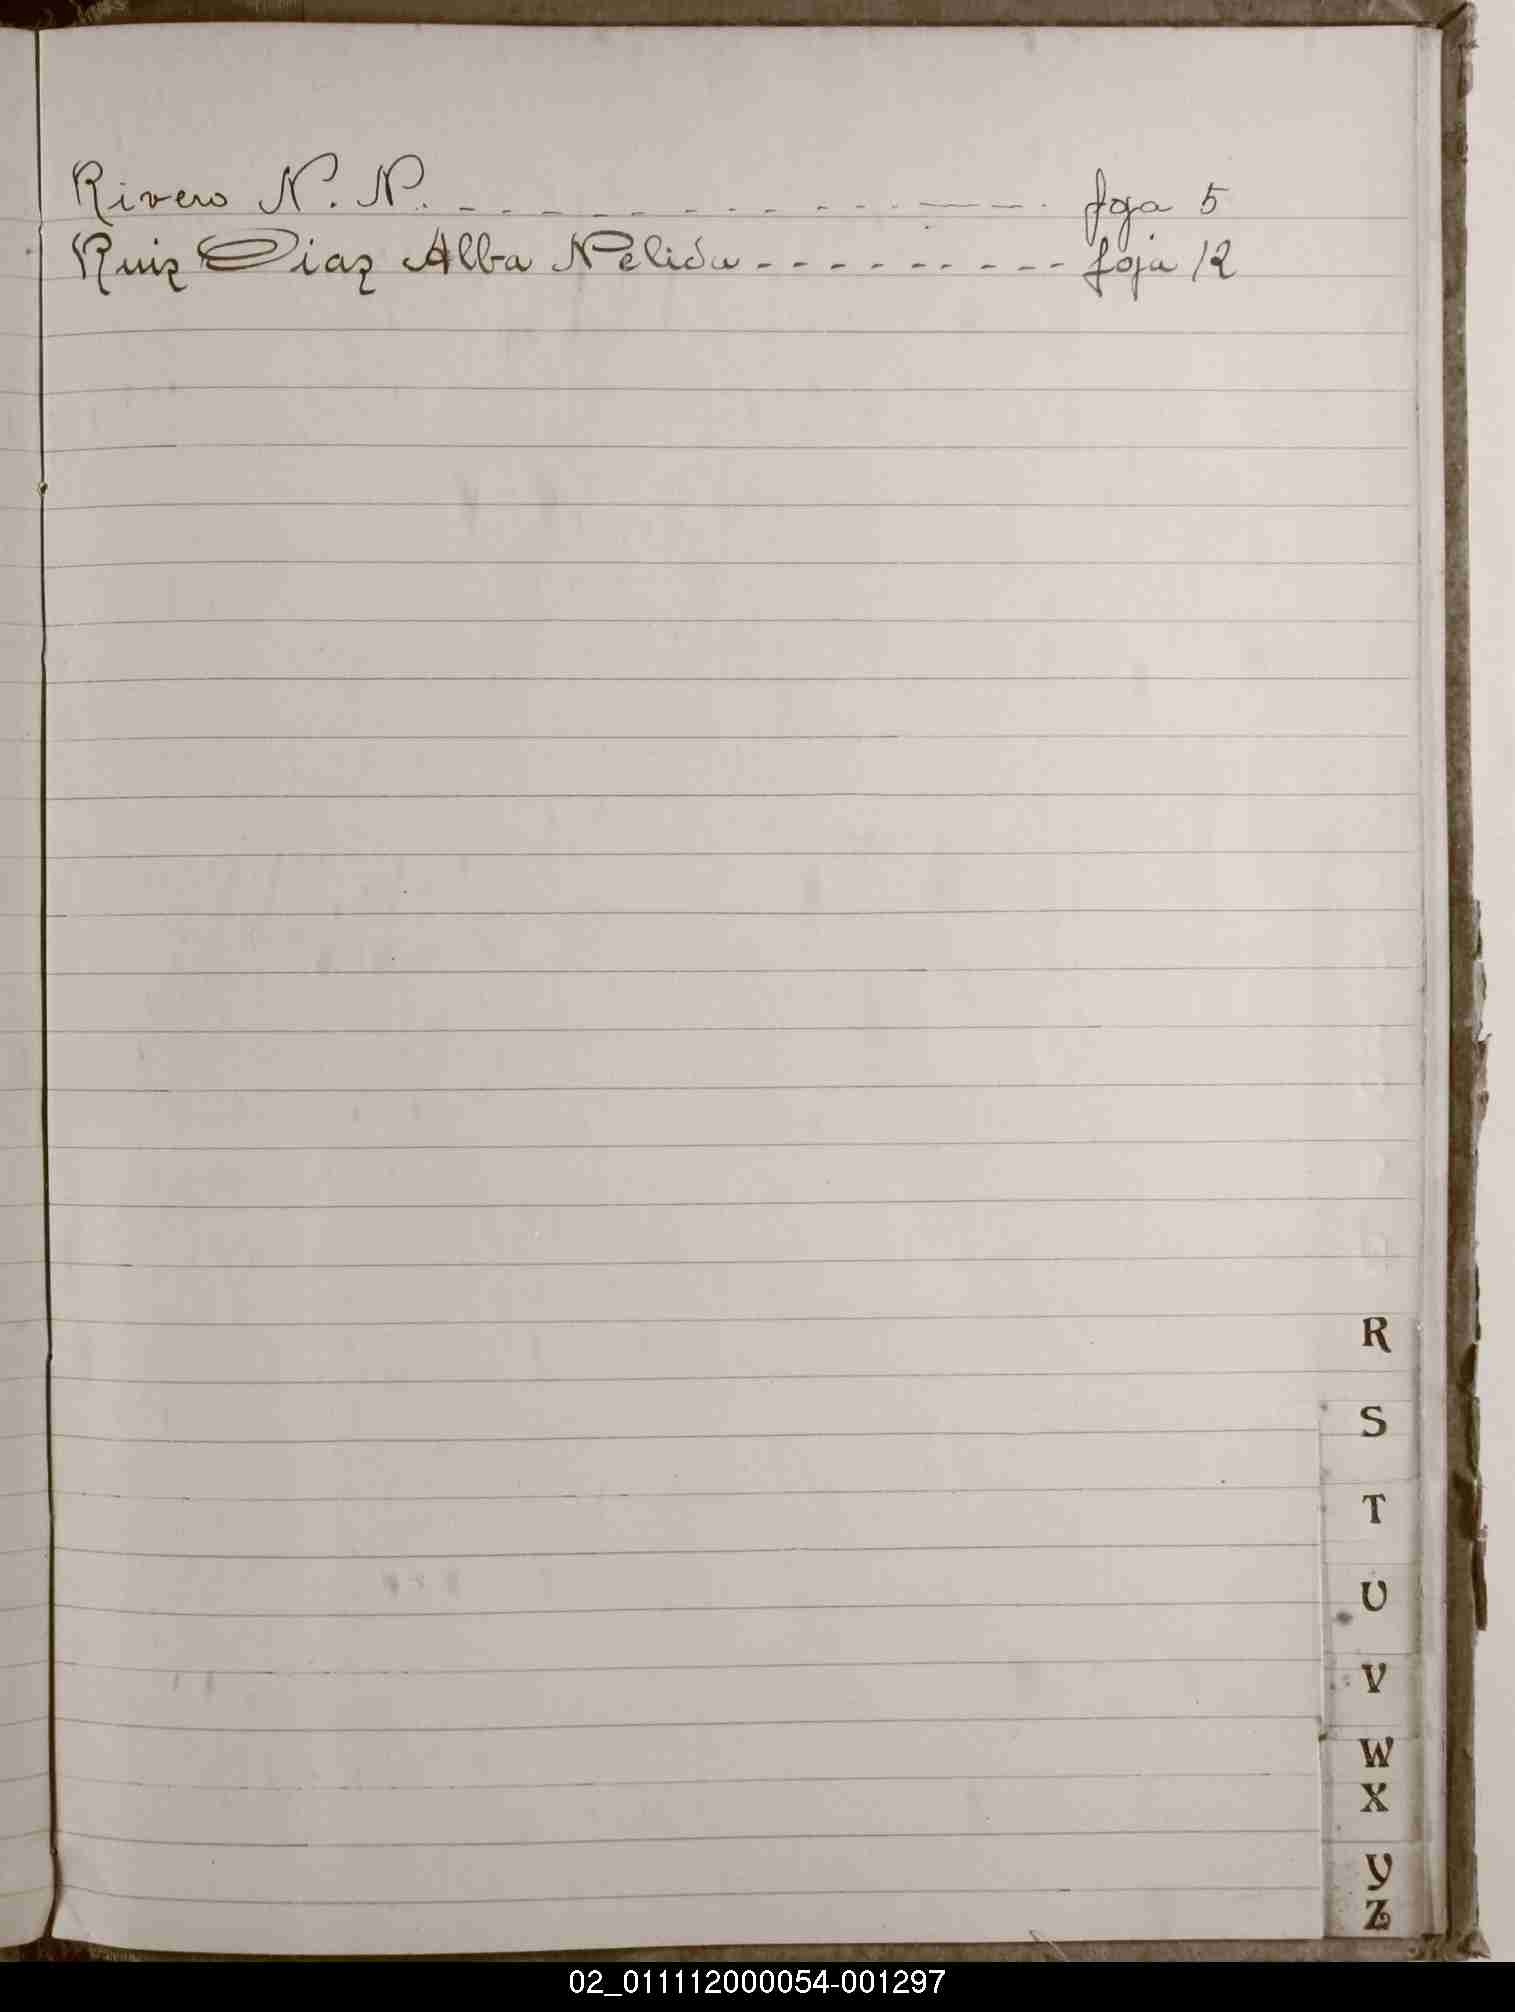 Rivero N. N. - - - - - - - - - - - - - foja 5
Ruiz Diaz Alba Nelida - - - - - - - - - foja 12
R
S
T
U
V
W
X
Y
Z
02_011112000054-001297